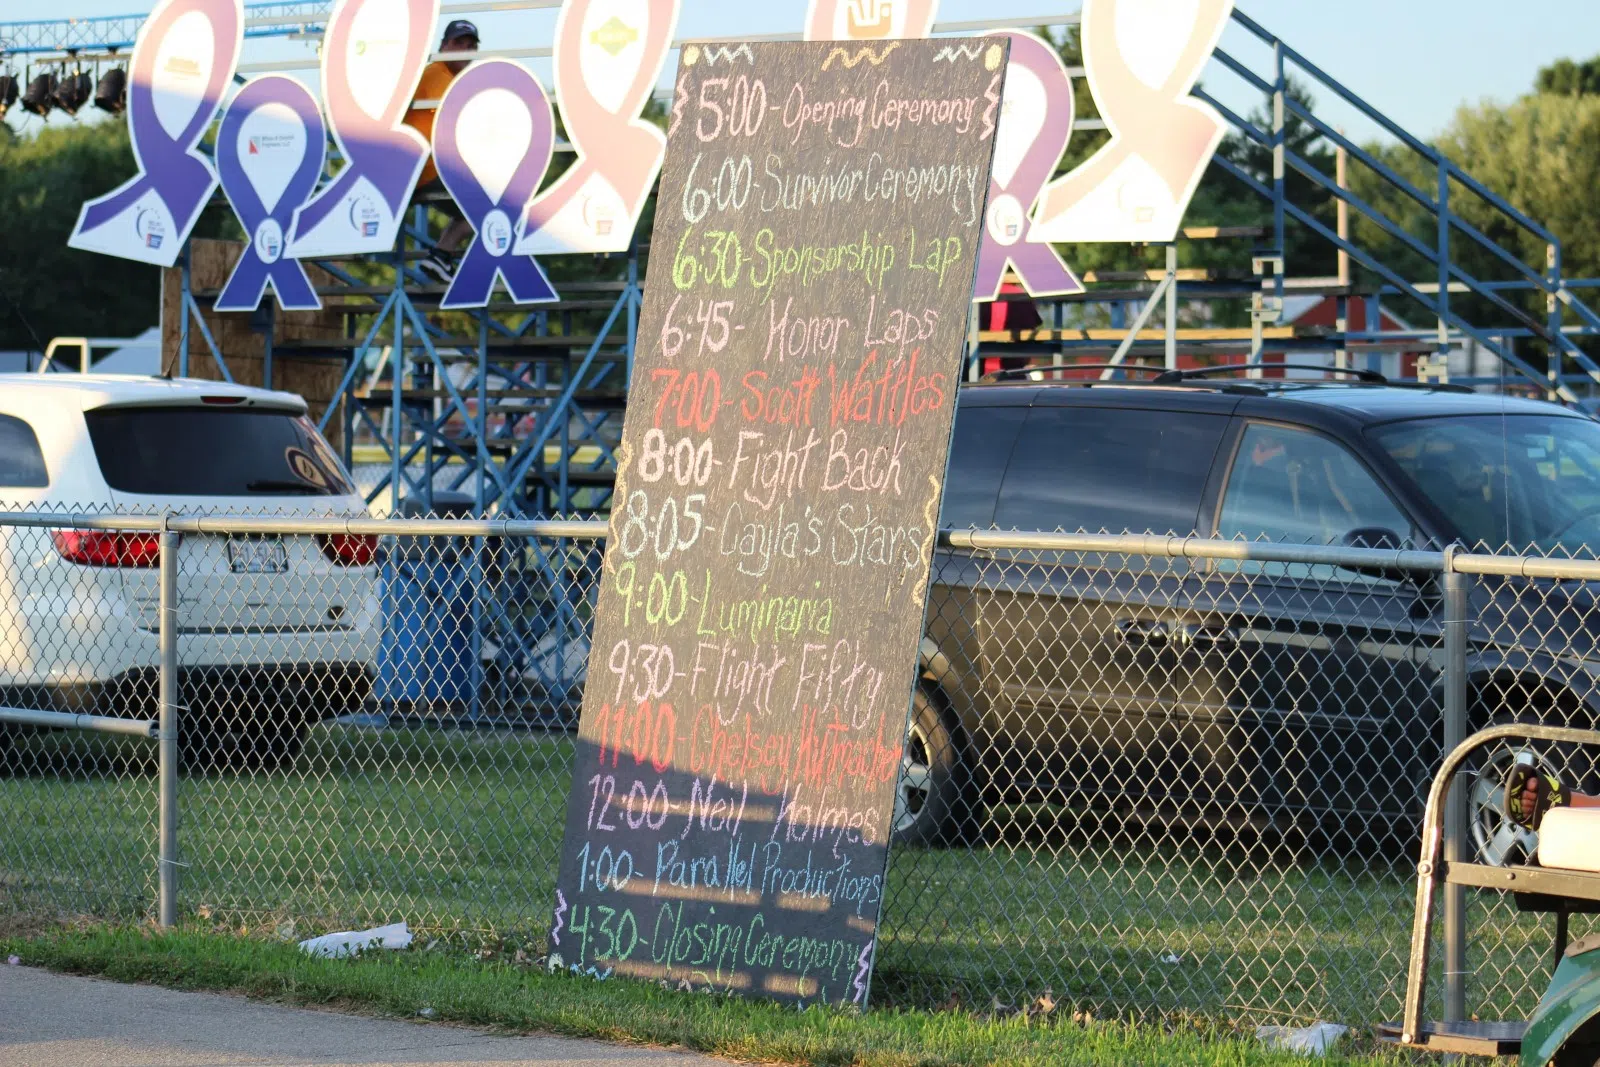 5:00-Opening Ceremony
6:00-Survivor Ceremony
6:30-Sponsorship Lap
6:45- Honor Laps
7:00- Scott Waffles
8:00- Fight Back
8:05- Cayla's Stars
9:00-Luminaria
9:30-Flight Fifty
11:00- Chelsey
12:00-Neil Holmes
1:00- Parallel Productions
4:30-Closing Ceremony